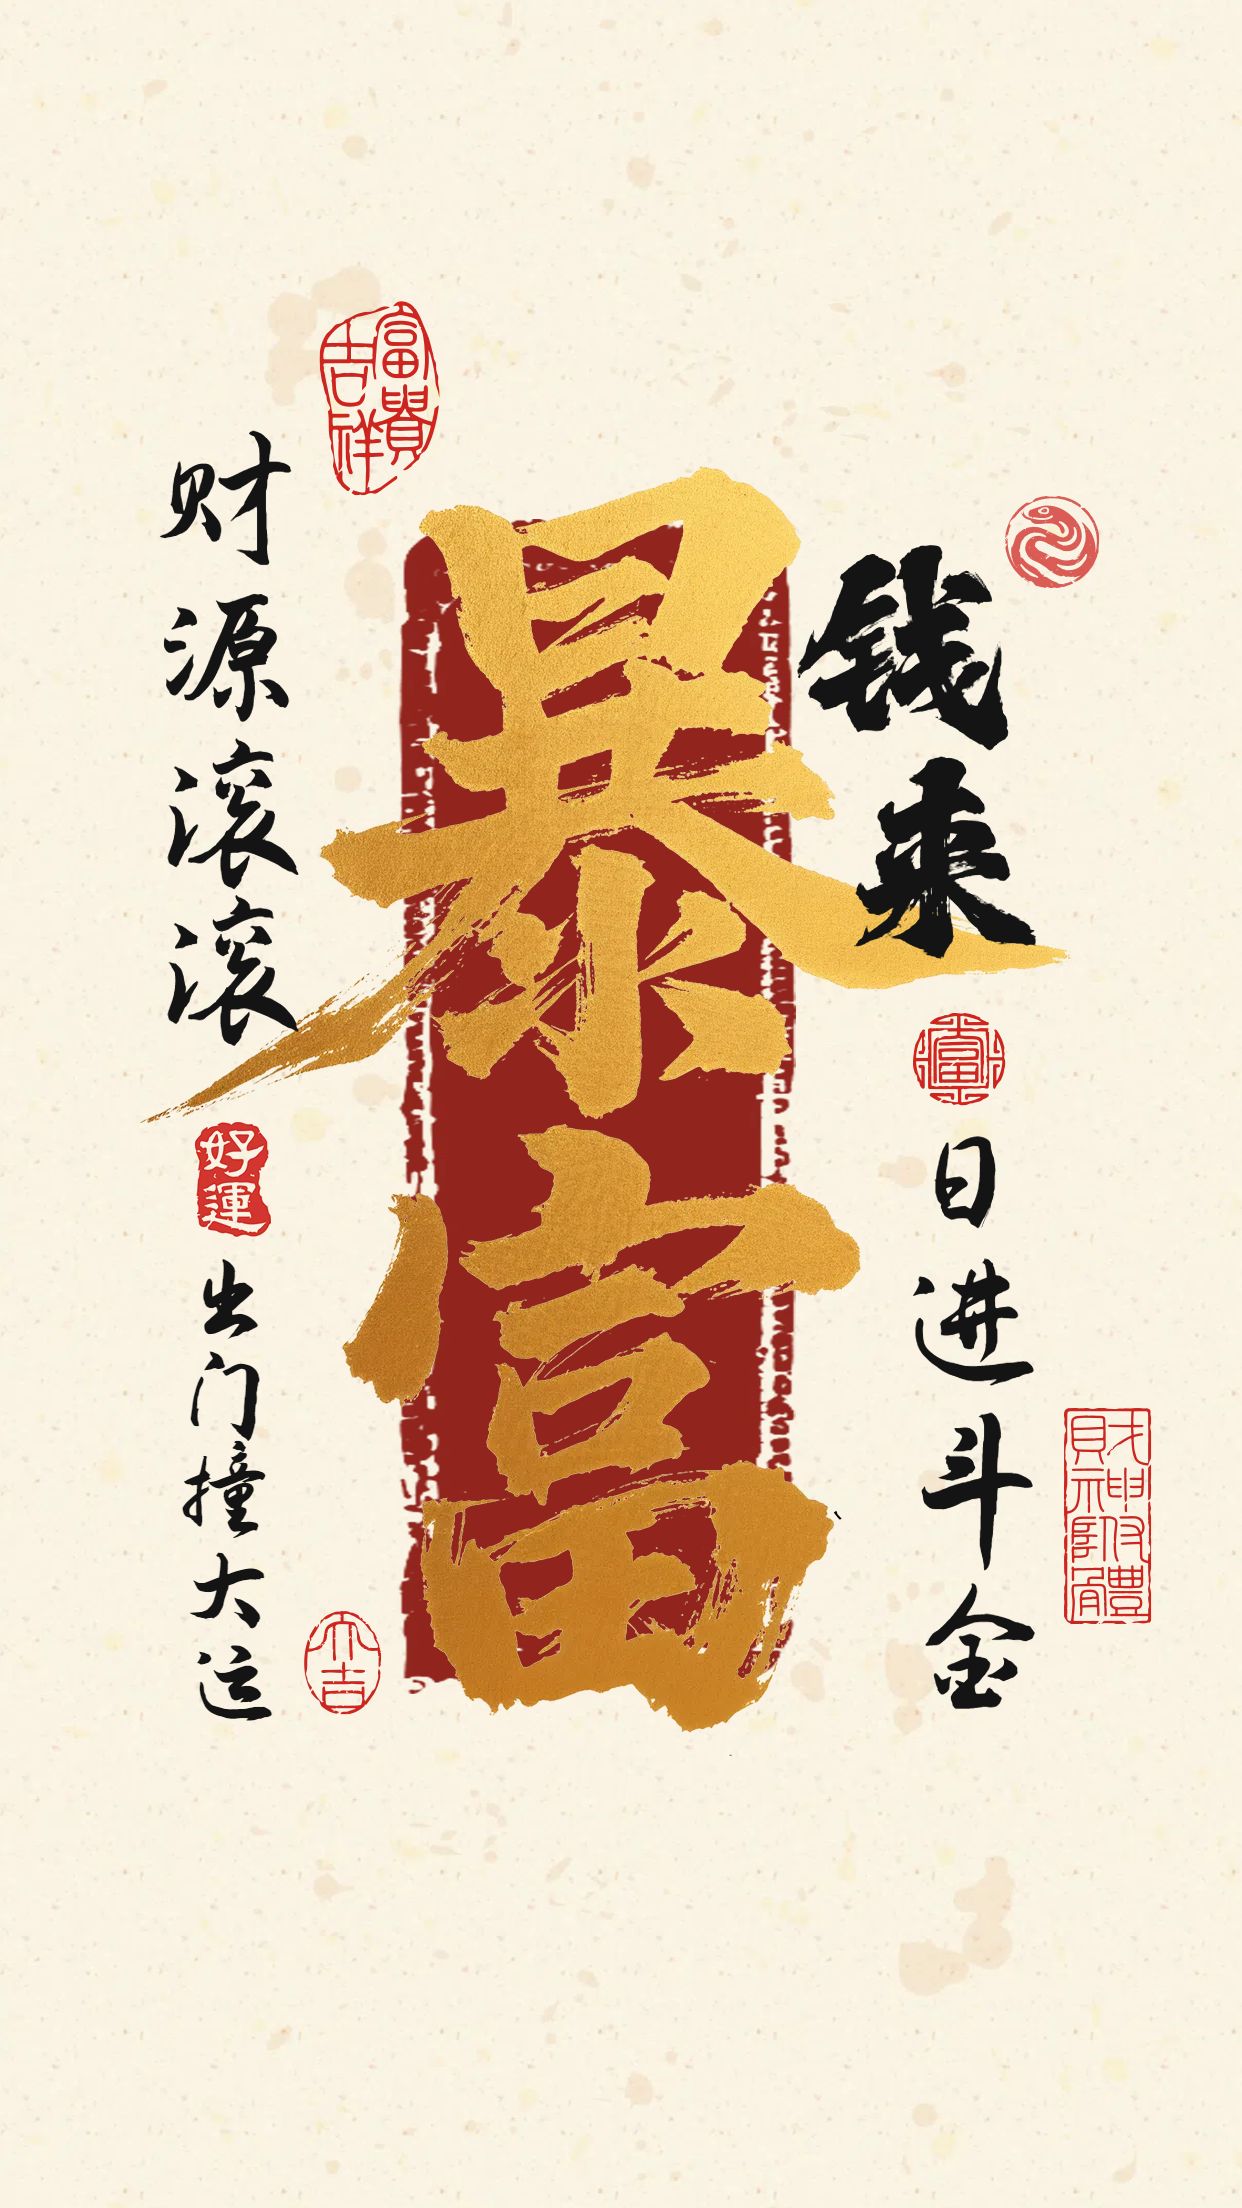 暴富
钱来
日进斗金
财源滚滚
出门撞大运
富貴吉祥
好運
大吉
財神附體